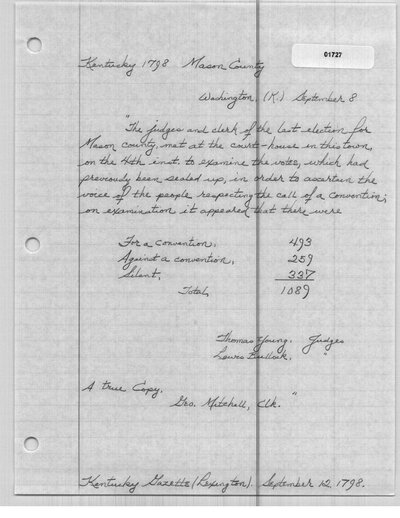 01727
Kentucky 1798 Mason County
Washington, (K.) September 8
"The judges and clerk of the last election for
Mason county, met at the court-house in this town,
on the 4th inst. to examine the votes, which had
previously been sealed up, in order to ascertain the
voice of the people respecting the call of a convention;
on examination it appeared that there were
For a convention, 493
Against a convention, 259
Silent, 337
Total, 1089
Thomas Young, Judges
Lewis Bullock, "
A true Copy.
Geo. Mitchell, Clk. "
Kentucky Gazette (Lexington). September 12, 1798.